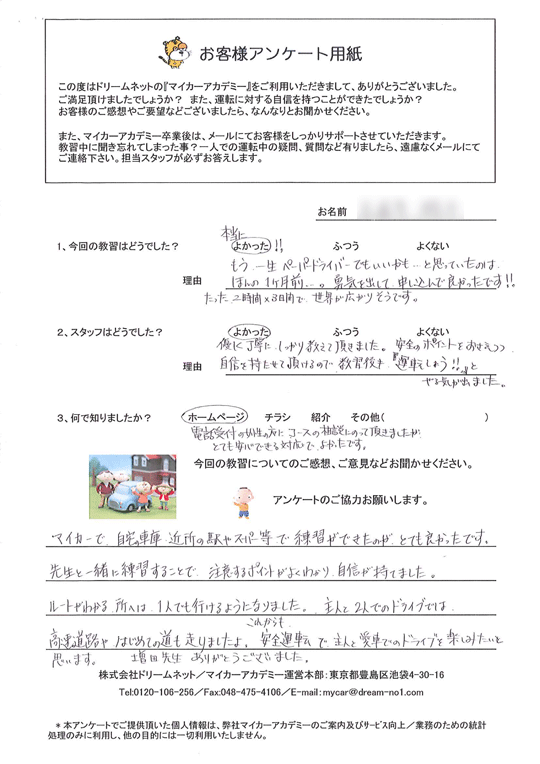 お客様アンケート用紙
この度はドリームネットの『マイカーアカデミー』をご利用いただきまして、ありがとうございました。
ご満足頂けましたでしょうか? また、運転に対する自信を持つことができたでしょうか?
お客様のご感想やご要望などございましたら、なんなりとお聞かせください。
また、マイカーアカデミー卒業後は、メールにてお客様をしっかりサポートさせていただきます。
教習中に聞き忘れてしまった事?一人での運転中の疑問、質問など有りましたら、遠慮なくメールにて
ご連絡下さい。担当スタッフが必ずお答えします。
お名前
本当に
1、今回の教習はどうでした? よかった!! ふつう よくない
もう一生ペーパードライバーでもいいかも…と思っていたのは、
理由 ほんの1ヶ月前…。勇気を出して申し込んで良かったです!!
たった2時間×3日間で、世界が広がりそうです。
2、スタッフはどうでした? よかった ふつう よくない
丁寧に、しっかり教えて頂きました。安全のポイントをおさえつつ
理由 自信を持たせて頂けるので教習後も『運転しよう!!』と
やる気が出ました。
3、何で知りましたか? ホームページ チラシ 紹介 その他( )
電話受付の女性の方にコースの相談にのって頂きましたが、
とても安心できる対応で、よかったです。
今回の教習についてのご感想、ご意見などお聞かせください。
アンケートのご協力お願いします。
マイカーで、自宅の車庫、近所の駅やスーパー等で練習ができたのが、とても良かったです。
先生と一緒に練習することで、注意するポイントがよくわかり、自信が持てました。
ルートがわかる所へは、1人でも行けるようになりました。主人と2人でのドライブでは、
これからも
高速道路やはじめての道も走りましたよ。安全運転で、主人と愛車でのドライブを楽しみたいと
思います。 増田先生 ありがとうございました。
株式会社ドリームネット/マイカーアカデミー運営本部:東京都豊島区池袋4-30-16
Tel:0120-106-256/Fax:048-475-4106/E-mail:mycar@dream-no1.com
*本アンケートでご提供頂いた個人情報は、弊社マイカーアカデミーのご案内及びサービス向上/業務のための統計
処理のみに利用し、他の目的には一切利用いたしません。